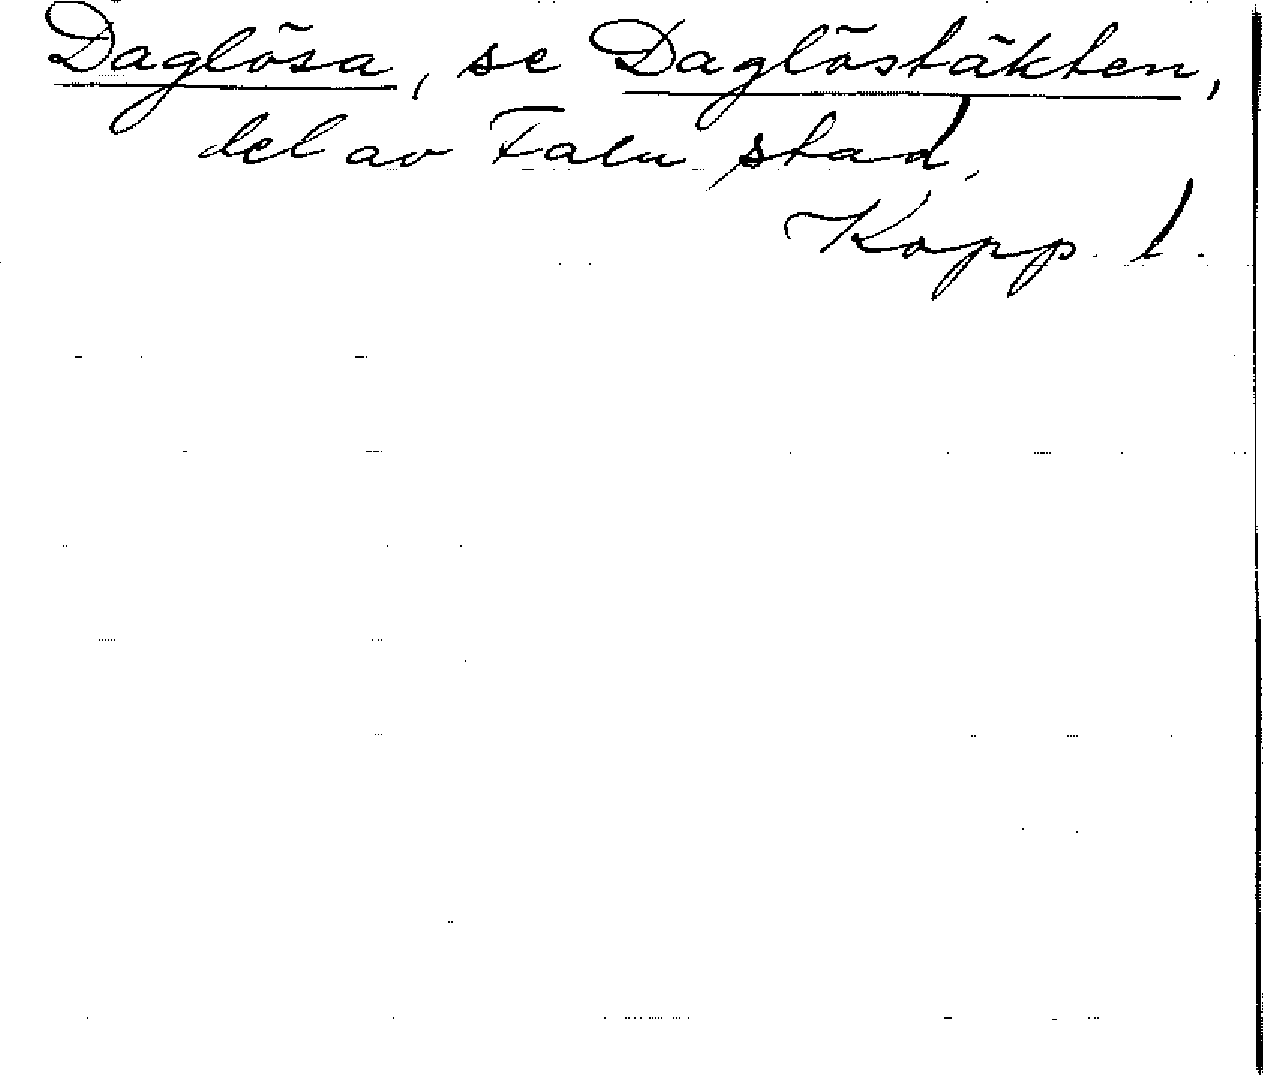 Daglösa, se Daglöstäkten,
del av Falu stad,
Kopp. l.